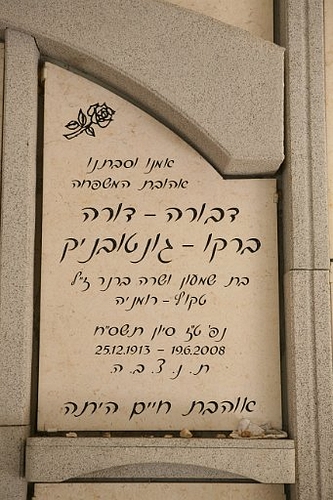 אמנו וסבתנו
אהובת המשפחה
דבורה - דורה
ברקו - גונטובניק
בת שמעון ושרה ברנר ז"ל
טקוץ' - רומניה
נפ' ט"ז סיון תשס"ח
25.12.1913 - 19.6.2008
ת. נ. צ. ב. ה.
אוהבת חיים היתה